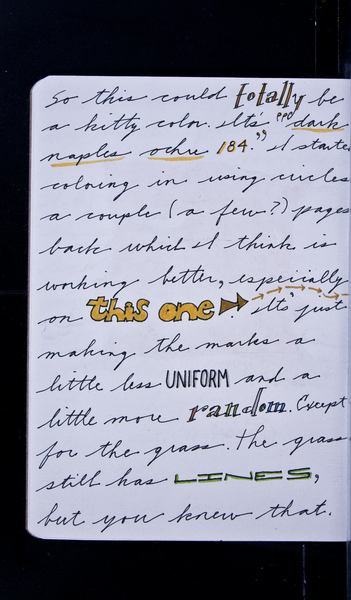 So this could totally be
a kitty color. It's "dark
naples ochre 184." I started
coloring in using circles
a couple (a few?) pages
back which I think is
working better, especially
on this one. It's just
making the marks a
little less UNIFORM and a
little more random. Except
for the grass. The grass
still has LINES,
but you knew that.